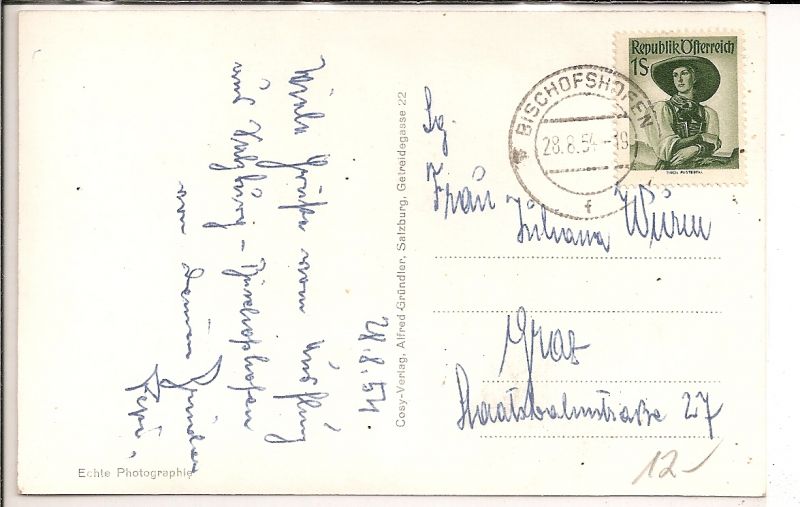 28.8.54
Viele Grüße vom Ausflug
und Salzburg - Bischofshofen
von deinem Bruder
Pepi.
Cosy-Verlag, Alfred Gründler, Salzburg, Getreidegasse 22
Echte Photographie
Republik Österreich
1S
TIROL PUSTERTAL
BISCHOFSHOFEN
28.8.54-19
f
Sg.
Frau
Juliana Wurm
Graz
Staatsbahnstraße 27
12-